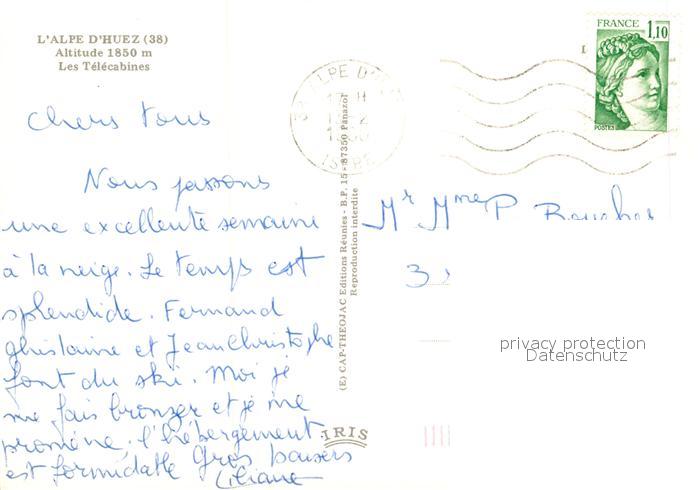 L'ALPE D'HUEZ (38)
Altitude 1850 m
Les Télécabines
FRANCE 1,10
POSTES
ALPE D'
ISERE
chers tous
Nous passons
une excellente semaine
à la neige. Le temps est
splendide. Fernand
ghislaine et JeanChristophe
font du ski. Moi je
me fais bronzer et je me
promène. l'hébergement
est formidable Gros baisers
Liliane
(E) CAP-THEOJAC Editions Réunies - B.P. 15 - 87350 Panazol
Reproduction interdite
Mr Mme P
3
privacy protection
Datenschutz
IRIS